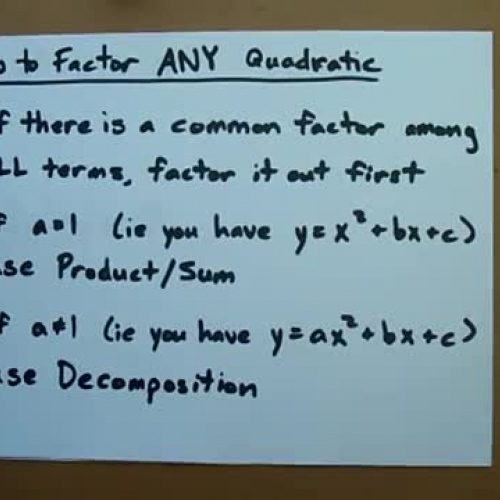 o to Factor ANY Quadratic
f there is a common factor among
LL terms, factor it out first
f a=1 (ie you have y=x²+bx+c)
se Product/Sum
f a≠1 (ie you have y=ax²+bx+c)
use Decomposition